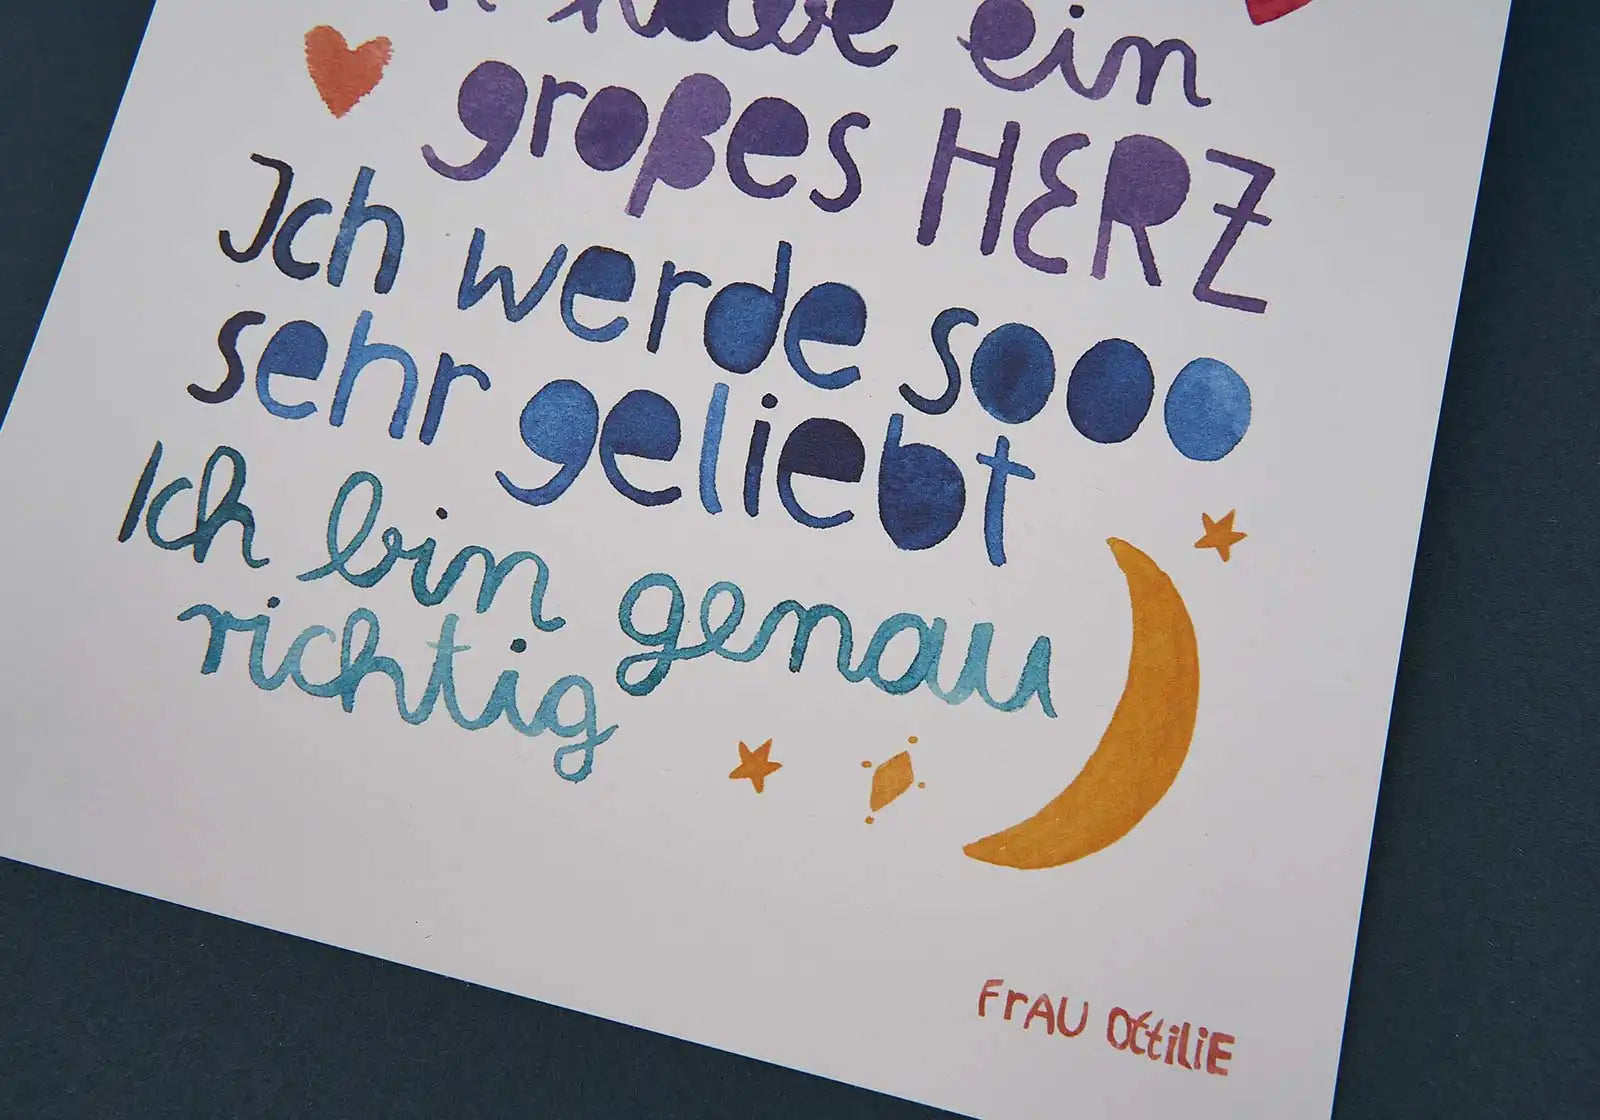 habe ein
großes HERZ
Ich werde sooo
sehr geliebt
Ich bin genau
richtig
FrAU OttiliE